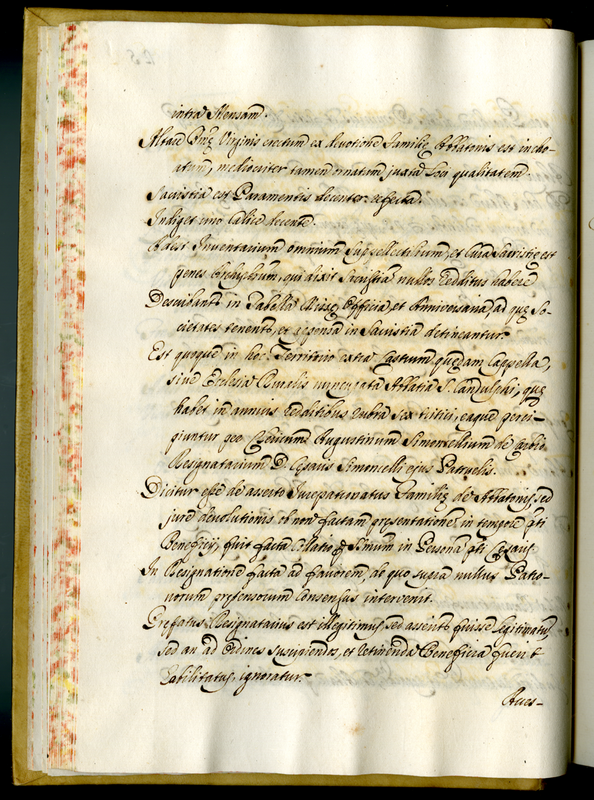 intra Mensam.
Altare Bmę Virginis erectum ex devotione Familię Abbatonis est incho-
atum, mediocriter tamen ornatum juxta loci qualitatem.
Sacristia est Paramentis decenter referta.
Indiget uno Calice decente.
Adest Inventarium omnium suppellectilium, et Cura Sacristię est
penes Archipbrum, qui dixit Sacristia nullos redditus habere
Describantr in Tabella Missę, Officia, et Anniversaria, ad quę So-
cietates tenentr, et appensa in Sacristia detineantur.
Est quoque in hoc Territorio extra Castrum quędam Cappella,
sive Ecclesia Ruralis nuncupata Abbatia S. Landulphi, quę
habet in annuis redditibus rubra sex tritici, eaque perci-
piuntur per Clericum Augustinum Simoncellium de
Resignatarium D. Cęsaris Simoncelli ejus Patruelis.
Dicitur esse de asserto Jurepatronatus Familię de Abbatonis, sed
jure devolutionis ob non factam presentationem in tempore pti
Beneficij, fuit facta Collatio p Simum in Persona pti Cęsaris.
In Resignatione facta ad favorem, de quo supra nullus Patro-
norum prętensorum Consensus intervenit.
Prefatus Resignatarius est illegitimus, sed asserit fuisse legitimatus,
sed an ad Ordines suscipiendos, et retinenda Beneficia fuerit
habilitatus, ignoratur.